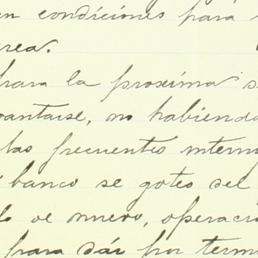 en condiciones para
area.
para la proxima s
vantarse, no habiendo
las frecuentes interru
banco se goteo del
lo de nuevo, operació
para dár por term